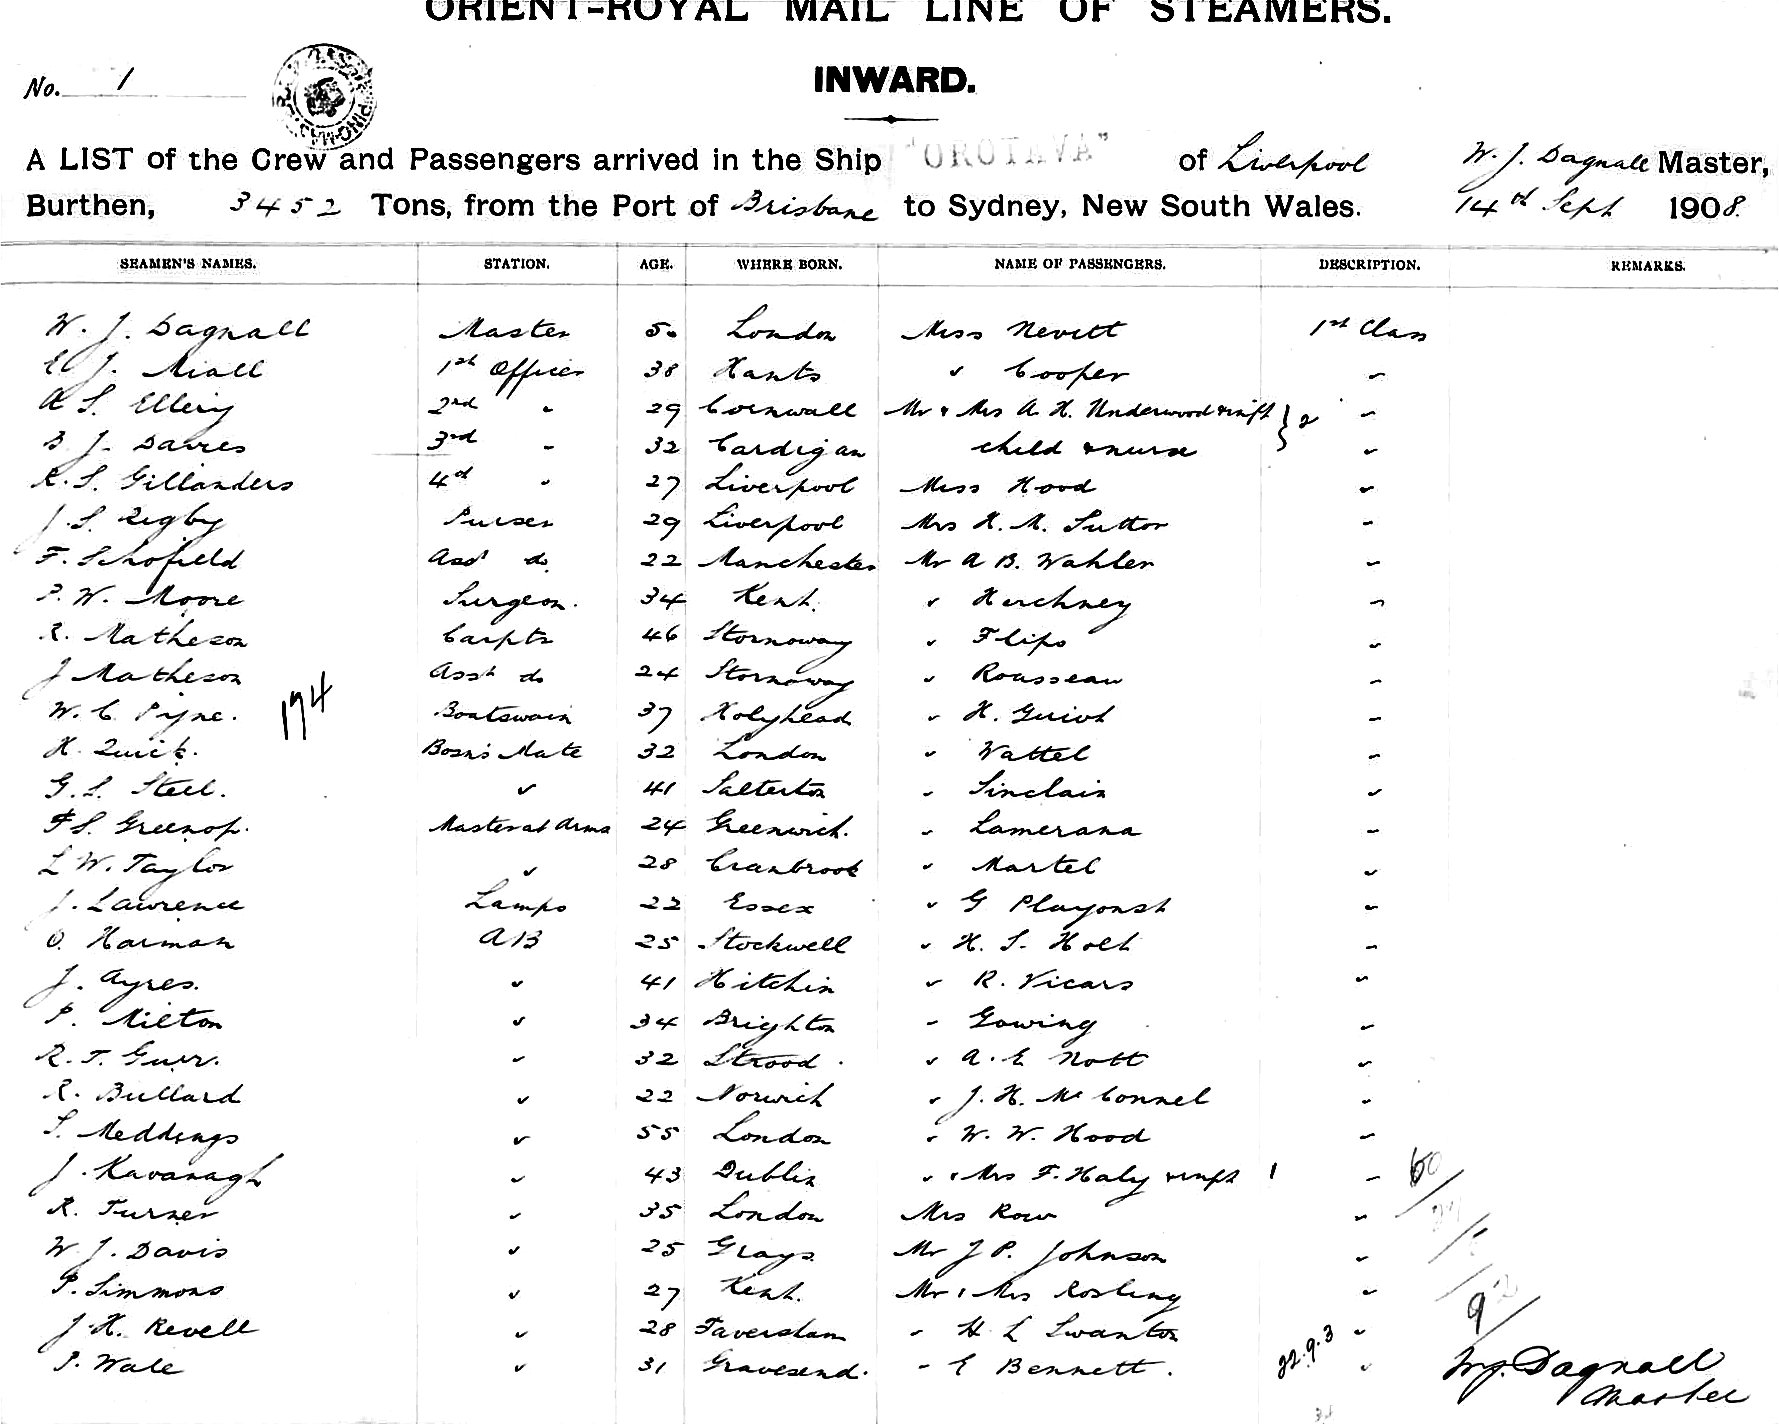 ORIENT-ROYAL MAIL LINE OF STEAMERS.
INWARD.
No. 1
A LIST of the Crew and Passengers arrived in the Ship "OROTAVA" of Liverpool W. J. Dagnall Master,
Burthen, 3452 Tons, from the Port of Brisbane to Sydney, New South Wales. 14th Sept 1908.
SEAMEN'S NAMES. STATION. AGE. WHERE BORN. NAME OF PASSENGERS. DESCRIPTION. REMARKS.
W. J. Dagnall Master 50 London Miss Nevitt 1st Class
E J. Miall 1st Officer 38 Hants " Cooper "
A S. Ellery 2nd " 29 Cornwall Mr & Mrs A. H. Underwood & inft } 2 "
B J. Davies 3rd " 32 Cardigan child & nurse "
R. S. Gillanders 4th " 27 Liverpool Miss Hood "
J. S. Rigby Purser 29 Liverpool Mrs H. M. Suttor "
F. Schofield Asst do. 22 Manchester Mr A B. Wahler "
P. W. Moore Surgeon. 34 Kent. " "
R. Matheson Carptr 46 Stornoway " Flips "
J Matheson Asst do 24 Stornoway " Rousseau "
W. C. Pyne. 194 Boatswain 37 Holyhead " H. Guiot "
H. Quick. Bosn's Mate 32 London " Wattel "
G. S. Steel. " 41 Salterton " Sinclair "
F S. Greenop. Master at Arms 24 Greenwich. " Lamerana "
L W. Taylor " 28 Cranbrook " Martel "
J. Lawrence Lamps 22 Essex " G Playonst "
O. Harman AB 25 Stockwell " H. S. Holt "
J. Ayres. " 41 Hitchin " R. Vicars "
P. Milton " 34 Brighton " Gowing "
R. T. Gurr. " 32 Strood. " A. E Nott "
R. Bullard " 22 Norwich " J. H. McConnel "
S. Meddings " 55 London " W. W. Hood "
J. Kavanagh " 43 Dublin " & Mrs F. Haly & inft 1 " 60
R. Turner " 35 London Mrs Row "
W. J. Davis " 25 Grays Mr J P. Johnson "
P. Simmons " 27 Kent. Mr & Mrs Rosling "
J. H. Revell " 28 Faversham " H L Swanton " 9
P. Wale " 31 Gravesend. " E Bennett. 22.9.3 " W. J. Dagnall
Master